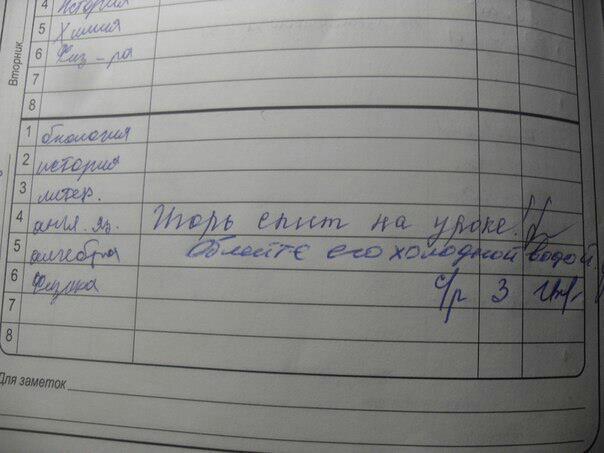 4 История
5 Химия
6 Физ-ра
Вторник
7
8
1 биология
2 история
3 литер.
4 англ. яз. Игорь спит на уроке!
5 алгебра Облейте его холодной водой.
6 Физика с/р 3
7
8
Для заметок